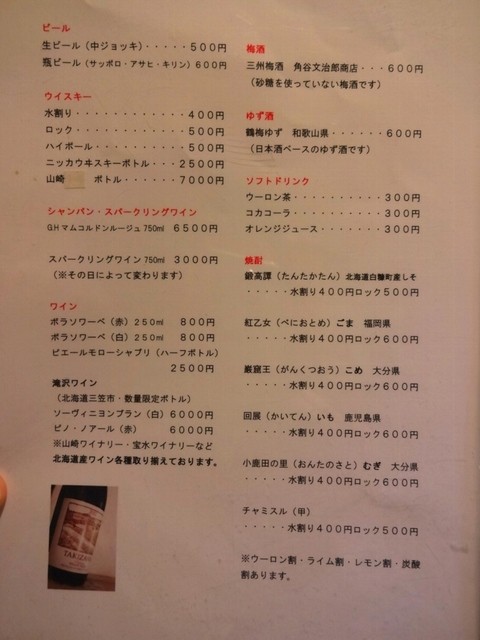 ビール
生ビール（中ジョッキ）・・・・・５００円
瓶ビール（サッポロ・アサヒ・キリン）６００円
ウイスキー
水割り・・・・・・・・・・・・４００円
ロック・・・・・・・・・・・・５００円
ハイボール・・・・・・・・・・５００円
ニッカウヰスキーボトル・・・２５００円
山崎　　ボトル・・・・・・・７０００円
シャンパン・スパークリングワイン
G.H マムコルドンルージュ 750ml　６５００円
スパークリングワイン 750ml　３０００円
（※その日によって変わります）
ワイン
ポラソワーベ（赤）２５０ml　８００円
ポラソワーベ（白）２５０ml　８００円
ピエールモローシャブリ（ハーフボトル）
２５００円
滝沢ワイン
（北海道三笠市・数量限定ボトル）
ソーヴィニヨンブラン（白）６０００円
ピノ・ノアール（赤）　　６０００円
※山崎ワイナリー・宝水ワイナリーなど
北海道産ワイン各種取り揃えております。
TAKIZAWA
梅酒
三州梅酒　角谷文治郎商店・・・６００円
（砂糖を使っていない梅酒です）
ゆず酒
鶴梅ゆず　和歌山県・・・・・・６００円
（日本酒ベースのゆず酒です）
ソフトドリンク
ウーロン茶・・・・・・・・・・３００円
コカコーラ・・・・・・・・・・３００円
オレンジジュース・・・・・・・３００円
焼酎
鍛高譚（たんたかたん）北海道白糠町産しそ
・・・・・水割り４００円ロック５００円
紅乙女（べにおとめ）ごま　福岡県
・・・・・水割り４００円ロック６００円
巌窟王（がんくつおう）こめ　大分県
・・・・・水割り４００円ロック６００円
回展（かいてん）いも　鹿児島県
・・・・・水割り４００円ロック６００円
小鹿田の里（おんたのさと）むぎ　大分県
・・・・・水割り４００円ロック６００円
チャミスル（甲）
・・・・・水割り４００円ロック５００円
※ウーロン割・ライム割・レモン割・炭酸
割あります。